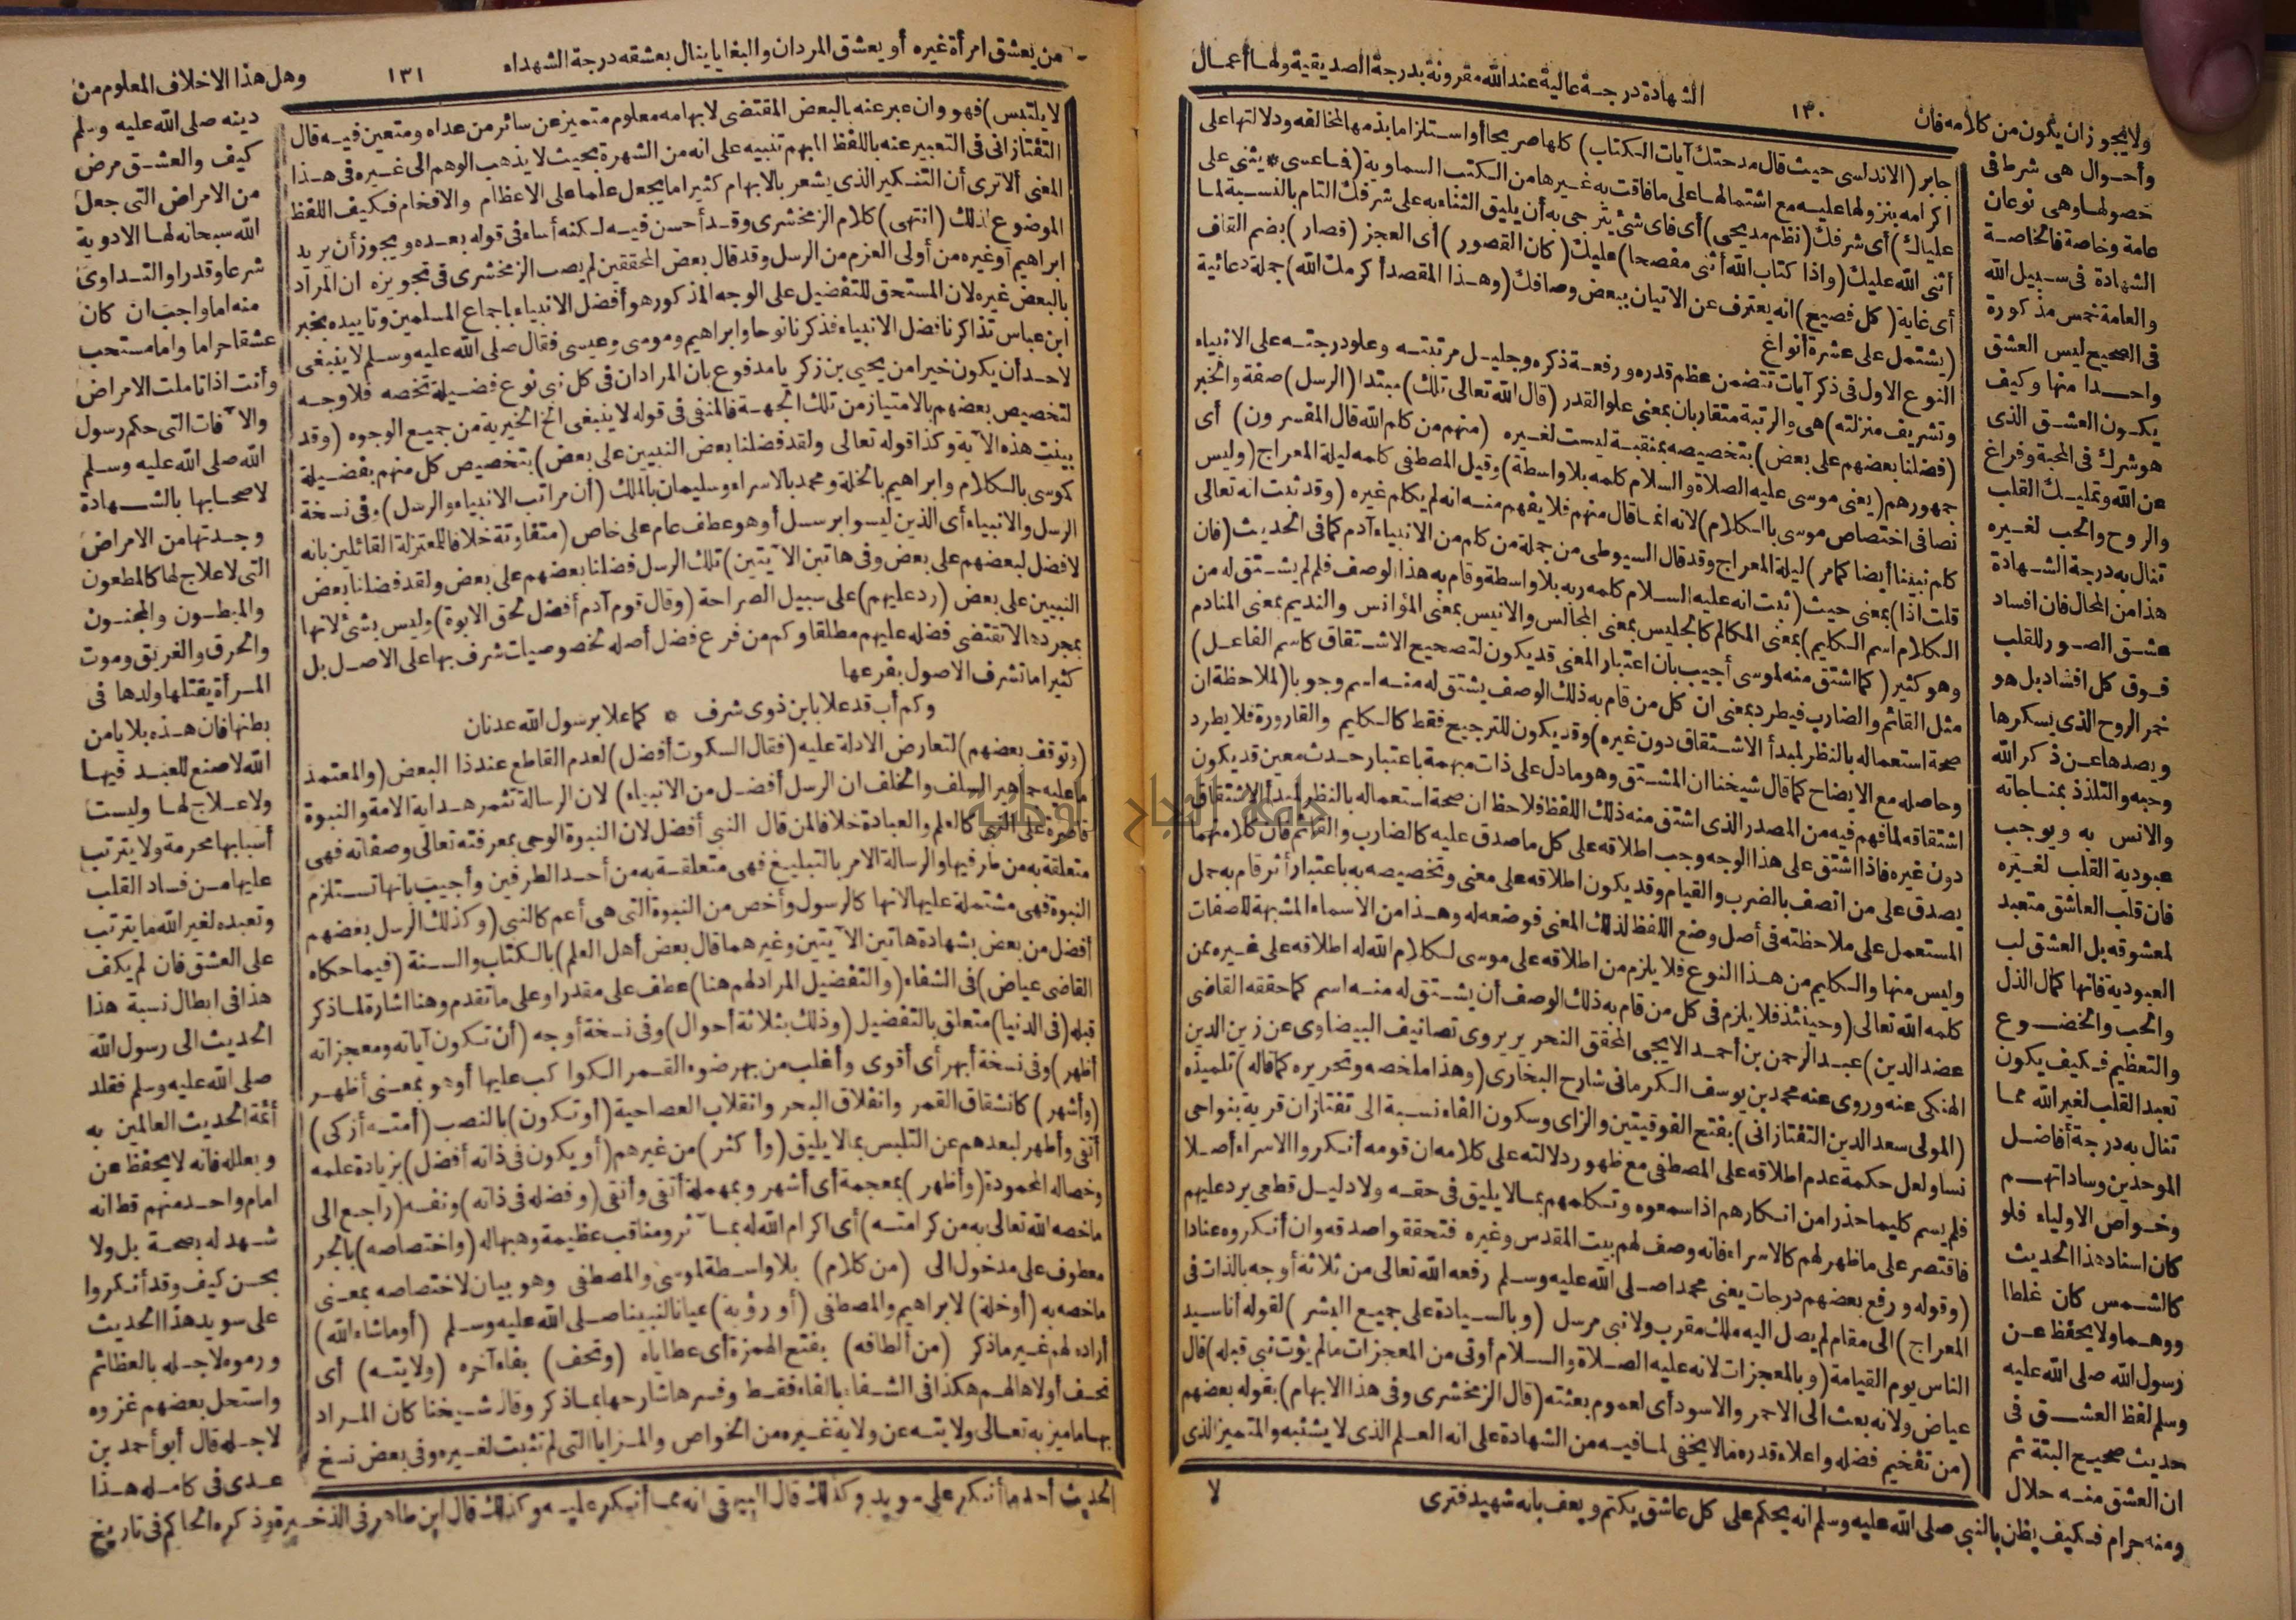 ولا يجوز ان يكون من كلامه فان
١٣٠
الشهادة درجة عالية عند الله مقرونة بدرجة الصديقية ولها أعمال
وأحوال هى شرط فى
حصولها وهى نوعان
عامة وخاصة فالخاصة
الشهادة فى سبيل الله
والعامة خمس مذكورة
فى الصحيح ليس العشق
واحدا منها وكيف
يكون العشق الذى
هو شرك فى المحبة وفراغ
عن الله وتمليك القلب
والروح والحب لغيره
تنال به درجة الشهادة
هذا من المحال فان افساد
عشق الصور للقلب
فوق كل افساد بل هو
خمر الروح الذى يسكرها
ويصدها عن ذكر الله
وحبه والتلذذ بمناجاته
والانس به ويوجب
عبودية القلب لغيره
فان قلب العاشق متعبد
لمعشوقه بل العشق لب
العبودية فانها كمال الذل
والحب والخضوع
والتعظيم فكيف يكون
تعبد القلب لغير الله مما
تنال به درجة أفاضل
الموحدين وساداتهم
وخواص الاولياء فلو
كان اسناد هذا الحديث
كالشمس كان غلطا
ووهما ولا يحفظ عن
رسول الله صلى الله عليه
وسلم لفظ العشق فى
حديث صحيح البتة ثم
ان العشق منه حلال
ومنه حرام فكيف يظن بالنبى صلى الله عليه وسلم انه يحكم على كل عاشق يكتم ويعف بانه شهيد فترى
جابر (الاندلسى حيث قال مدحتك آيات الكتاب) كلها صريحا أو استلزاما بذمها المخالفه ودلالتها على
اكرامه بنزولها عليه مع اشتمالها على ما فاقت به غيرها من الكتب السماوية (فا عسى * يثنى على
علياك) أى شرفك (نظم مديحى) أى فاى شئ يترجى به أن يليق الثناء به على شرفك التام بالنسبة لما
أثنى الله عليك (واذا كتاب الله أثنى مفصحا) عليك (كان القصور) أى العجز (قصار) بضم القاف
أى غاية (كل فصيح) انه يعترف عن الاتيان ببعض وصافك (وهذا المقصد أكرمك الله) جملة دعائية
(يشتمل على عشرة أنواع
النوع الاول فى ذكر آيات تتضمن عظم قدره ورفعة ذكره وجليل مرتبته وعلو درجته على الانبياء
وتشريف منزلته) هى والرتبة متقاربان بمعنى علو القدر (قال الله تعالى تلك) مبتدا (الرسل) صفة والخبر
(فضلنا بعضهم على بعض) بتخصيصه بمنقبة ليست لغيره (منهم من كلم الله قال المفسرون) أى
جمهورهم (يعنى موسى عليه الصلاة والسلام كلمه بلا واسطة) وقيل المصطفى كلمه ليلة المعراج (وليس
نصا فى اختصاص موسى بالكلام) لانه انما قال منهم فلا يفهم منه انه لم يكلم غيره (وقد ثبت انه تعالى
كلم نبينا أيضا كما مر) ليلة المعراج وقد قال السيوطى من جملة من كلم من الانبياء آدم كما فى الحديث (فان
قلت اذا) بمعنى حيث (ثبت انه عليه السلام كلمه ربه بلا واسطة وقام به هذا الوصف فلم لم يشتق له من
الكلام اسم الكليم) بمعنى المكالم كالجليس بمعنى المجالس والانيس بمعنى المؤانس والنديم بمعنى المنادم
وهو كثير (كما اشتق منه لموسى أجيب بان اعتبار المعنى قد يكون لتصحيح الاشتقاق كاسم الفاعل)
مثل القائم والضارب فيطرد بمعنى ان كل من قام به ذلك الوصف يشتق له منه اسم وجوبا (لملاحظة ان
صحة استعماله بالنظر لمبدأ الاشتقاق دون غيره) وقد يكون للترجيح فقط كالكليم والقارورة فلا يطرد
وحاصله مع الايضاح كما قال شيخنا ان المشتق وهو ما دل على ذات مبهمة باعتبار حدث معين قد يكون
اشتقاقه لما فهم فيه من المصدر الذى اشتق منه ذلك اللفظ فلاحظ ان صحة استعماله بالنظر لمبدأ الاشتقاق
دون غيره فاذا اشتق على هذا الوجه وجب اطلاقه على كل ما صدق عليه كالضارب والقائم فان كلا منهما
يصدق على من اتصف بالضرب والقيام وقد يكون اطلاقه على معنى وتخصيصه به باعتبار أثر قام به حمل
المستعمل على ملاحظته فى أصل وضع اللفظ لذلك المعنى فوضعه له وهذا من الاسماء المشبهة للصفات
وليس منها والكليم من هذا النوع فلا يلزم من اطلاقه على موسى لكلام الله له اطلاقه على غيره ممن
كلمه الله تعالى (وحينئذ فلا يلزم فى كل من قام به ذلك الوصف أن يشتق له منه اسم كما حققه القاضى
عضد الدين) عبد الرحمن بن أحمد الايجى المحقق النحرير يروى تصانيف البيضاوى عن زين الدين
الهنكى عنه وروى عنه محمد بن يوسف الكرمانى شارح البخارى (وهذا ملخصه وتحريره كما قاله) تلميذه
(المولى سعد الدين التفتازانى) بفتح الفوقيتين والزاى وسكون الفاء نسبة الى تفتازان قرية بنواحى
نسا ولعل حكمة عدم اطلاقه على المصطفى مع ظهور دلالته على كلامه ان قومه أنكروا الاسراء أصلا
فلم يسم كليما حذرا من انكارهم اذا سمعوه وتكلمهم بما لا يليق فى حقه ولا دليل قطعى يرد عليهم
فاقتصر على ما ظهر لهم كالاسراء فانه وصف لهم بيت المقدس وغيره فتحققوا صدقه وان أنكروه عنادا
(وقوله ورفع بعضهم درجات يعنى محمدا صلى الله عليه وسلم رفعه الله تعالى من ثلاثة أوجه بالذات فى
المعراج) الى مقام لم يصل اليه ملك مقرب ولا نبى مرسل (وبالسيادة على جميع البشر) لقوله أنا سيد
الناس يوم القيامة (وبالمعجزات لانه عليه الصلاة والسلام أوتى من المعجزات ما لم يؤت نبى قبله) قال
عياض ولانه بعث الى الاحمر والاسود أى لعموم بعثته (قال الزمخشرى وفى هذا الابهام) بقوله بعضهم
(من تفخيم فضله واعلاء قدره ما لا يخفى لما فيه من الشهادة على انه العلم الذى لا يشتبه والمتميز الذى
لا
من يعشق امرأة غيره أو يعشق المردان والبغايا ينال بعشقه درجة الشهداء
١٣١
وهل هذا الا خلاف المعلوم من
لا يلتبس) فهو وان عبر عنه بالبعض المقتضى لابهامه معلوم متميز عن سائر من عداه ومتعين فيه قال
التفتازانى فى التعبير عنه باللفظ المبهم تنبيه على انه من الشهرة بحيث لا يذهب الوهم الى غيره فى هذا
المعنى ألا ترى أن التنكير الذى يشعر بالابهام كثيرا ما يجعل علما على الاعظام والافخام فكيف اللفظ
الموضوع لذلك (انتهى) كلام الزمخشرى وقد أحسن فيه لكنه أساء فى قوله بعده ويجوز أن يريد
ابراهيم أو غيره من أولى العزم من الرسل وقد قال بعض المحققين لم يصب الزمخشرى فى تجويزه ان المراد
بالبعض غيره لان المستحق للتفضيل على الوجه المذكور هو أفضل الانبياء باجماع المسلمين وتاييده بخبر
ابن عباس تذاكرنا فضل الانبياء فذكرنا نوحا وابراهيم وموسى وعيسى فقال صلى الله عليه وسلم لا ينبغى
لاحد أن يكون خيرا من يحيى بن زكريا مدفوع بان المراد ان فى كل نبى نوع فضيلة تخصه فلا وجه
لتخصيص بعضهم بالامتياز من تلك الجهة فالمنفى فى قوله لا ينبغى الخ الخيرية من جميع الوجوه (وقد
بينت هذه الآية وكذا قوله تعالى ولقد فضلنا بعض النبيين على بعض) بتخصيص كل منهم بفضيلة
كموسى بالكلام وابراهيم بالخلة ومحمد بالاسراء وسليمان بالملك (أن مراتب الانبياء والرسل) وفى نسخة
الرسل والانبياء أى الذين ليسوا برسل أو هو عطف عام على خاص (متفاوتة خلافا للمعتزلة القائلين بانه
لا فضل لبعضهم على بعض وفى هاتين الآيتين) تلك الرسل فضلنا بعضهم على بعض ولقد فضلنا بعض
النبيين على بعض (رد عليهم) على سبيل الصراحة (وقال قوم آدم أفضل لحق الابوة) وليس بشئ لانها
بمجردها لا تقتضى فضله عليهم مطلقا وكم من فرع فضل أصله لخصوصيات شرف بها على الاصل بل
كثيرا ما تشرف الاصول بفرعها
وكم أب قد علا بابن ذوى شرف * كما علا برسول الله عدنان
(وتوقف بعضهم) لتعارض الادلة عليه (فقال السكوت أفضل) لعدم القاطع عند ذا البعض (والمعتمد
ما عليه جماهير السلف والخلف ان الرسل أفضل من الانبياء) لان الرسالة تثمر هداية الامة والنبوة
قاصرة على النبى كالعلم والعبادة خلافا لمن قال النبى أفضل لان النبوة الوحى بمعرفته تعالى وصفاته فهى
متعلقة به من طرفيها والرسالة الامر بالتبليغ فهى متعلقة به من أحد الطرفين وأجيب بانها تستلزم
النبوة فهى مشتملة عليها لانها كالرسول وأخص من النبوة التى هى أعم كالنبى (وكذلك الرسل بعضهم
أفضل من بعض بشهادة هاتين الآيتين وغيرهما قال بعض أهل العلم) بالكتاب والسنة (فيما حكاه
القاضى عياض) فى الشفاء (والتفضيل المراد لهم هنا) عطف على مقدر أو على ما تقدم وهنا اشارة لما ذكر
قبله (فى الدنيا) متعلق بالتفضيل (وذلك بثلاثة أحوال) وفى نسخة أوجه (أن تكون آياته ومعجزاته
أظهر) وفى نسخة أبهر أى أقوى وأغلب من بهر ضوء القمر الكواكب عليها أو هو بمعنى أظهر
(وأشهر) كانشقاق القمر وانفلاق البحر وانقلاب العصا حية (أو تكون) بالنصب (أمته أزكى)
أتقى وأطهر لبعدهم عن التلبس بما لا يليق (وأكثر) من غيرهم (أو يكون فى ذاته أفضل) بزيادة علمه
وخصاله المحمودة (وأظهر) بمعجمة أى أشهر وبمهملة أنقى وأتقى (وفضله فى ذاته) ونفسه (راجع الى
ما خصه الله تعالى به من كرامته) أى اكرام الله له بمآثر ومناقب عظيمة وهبها له (واختصاصه) بالجر
معطوف على مدخول الى (من كلام) بلا واسطة لموسى والمصطفى وهو بيان لاختصاصه بمعنى
ما خصه به (أو خلة) لابراهيم والمصطفى (أو رؤية) عيانا لنبينا صلى الله عليه وسلم (أو ما شاء الله)
أراده لهم غير ما ذكر (من ألطافه) بفتح الهمزة أى عطاياه (وتحف) بفاء آخره (ولايته) أى
تحف أولاها لهم هكذا فى الشفاء بالفاء فقط وفسرها شارحها بما ذكر وقال شيخنا كان المراد
بها ما ميز به تعالى ولايته عن ولاية غيره من الخواص والمزايا التى لم تثبت لغيره وفى بعض نسخ
دينه صلى الله عليه وسلم
كيف والعشق مرض
من الامراض التى جعل
الله سبحانه لها الادوية
شرعا وقدرا والتداوى
منه اما واجب ان كان
عشقا حراما واما مستحب
وأنت اذا تاملت الامراض
والآفات التى حكم رسول
الله صلى الله عليه وسلم
لاصحابها بالشهادة
وجدتها من الامراض
التى لا علاج لها كالمطعون
والمبطون والمجنون
والحرق والغريق وموت
المرأة يقتلها ولدها فى
بطنها فان هذه بلايا من
الله لا صنع للعبد فيها
ولا علاج لها وليست
أسبابها محرمة ولا يترتب
عليها من فساد القلب
وتعبده لغير الله ما يترتب
على العشق فان لم يكف
هذا فى ابطال نسبة هذا
الحديث الى رسول الله
صلى الله عليه وسلم فقلد
أئمة الحديث العالمين به
وبعلله فانه لا يحفظ عن
امام واحد منهم قط انه
شهد له بصحة بل ولا
بحسن كيف وقد أنكروا
على سويد هذا الحديث
ورموه لاجله بالعظائم
واستحل بعضهم غزوه
لاجله قال أبو أحمد بن
عدى فى كامله هذا
الحديث أحد ما أنكر على سويد وكذلك قال البيهقى انه مما أنكر عليه وكذلك قال ابن طاهر فى الذخيرة وذكره الحاكم فى تاريخ